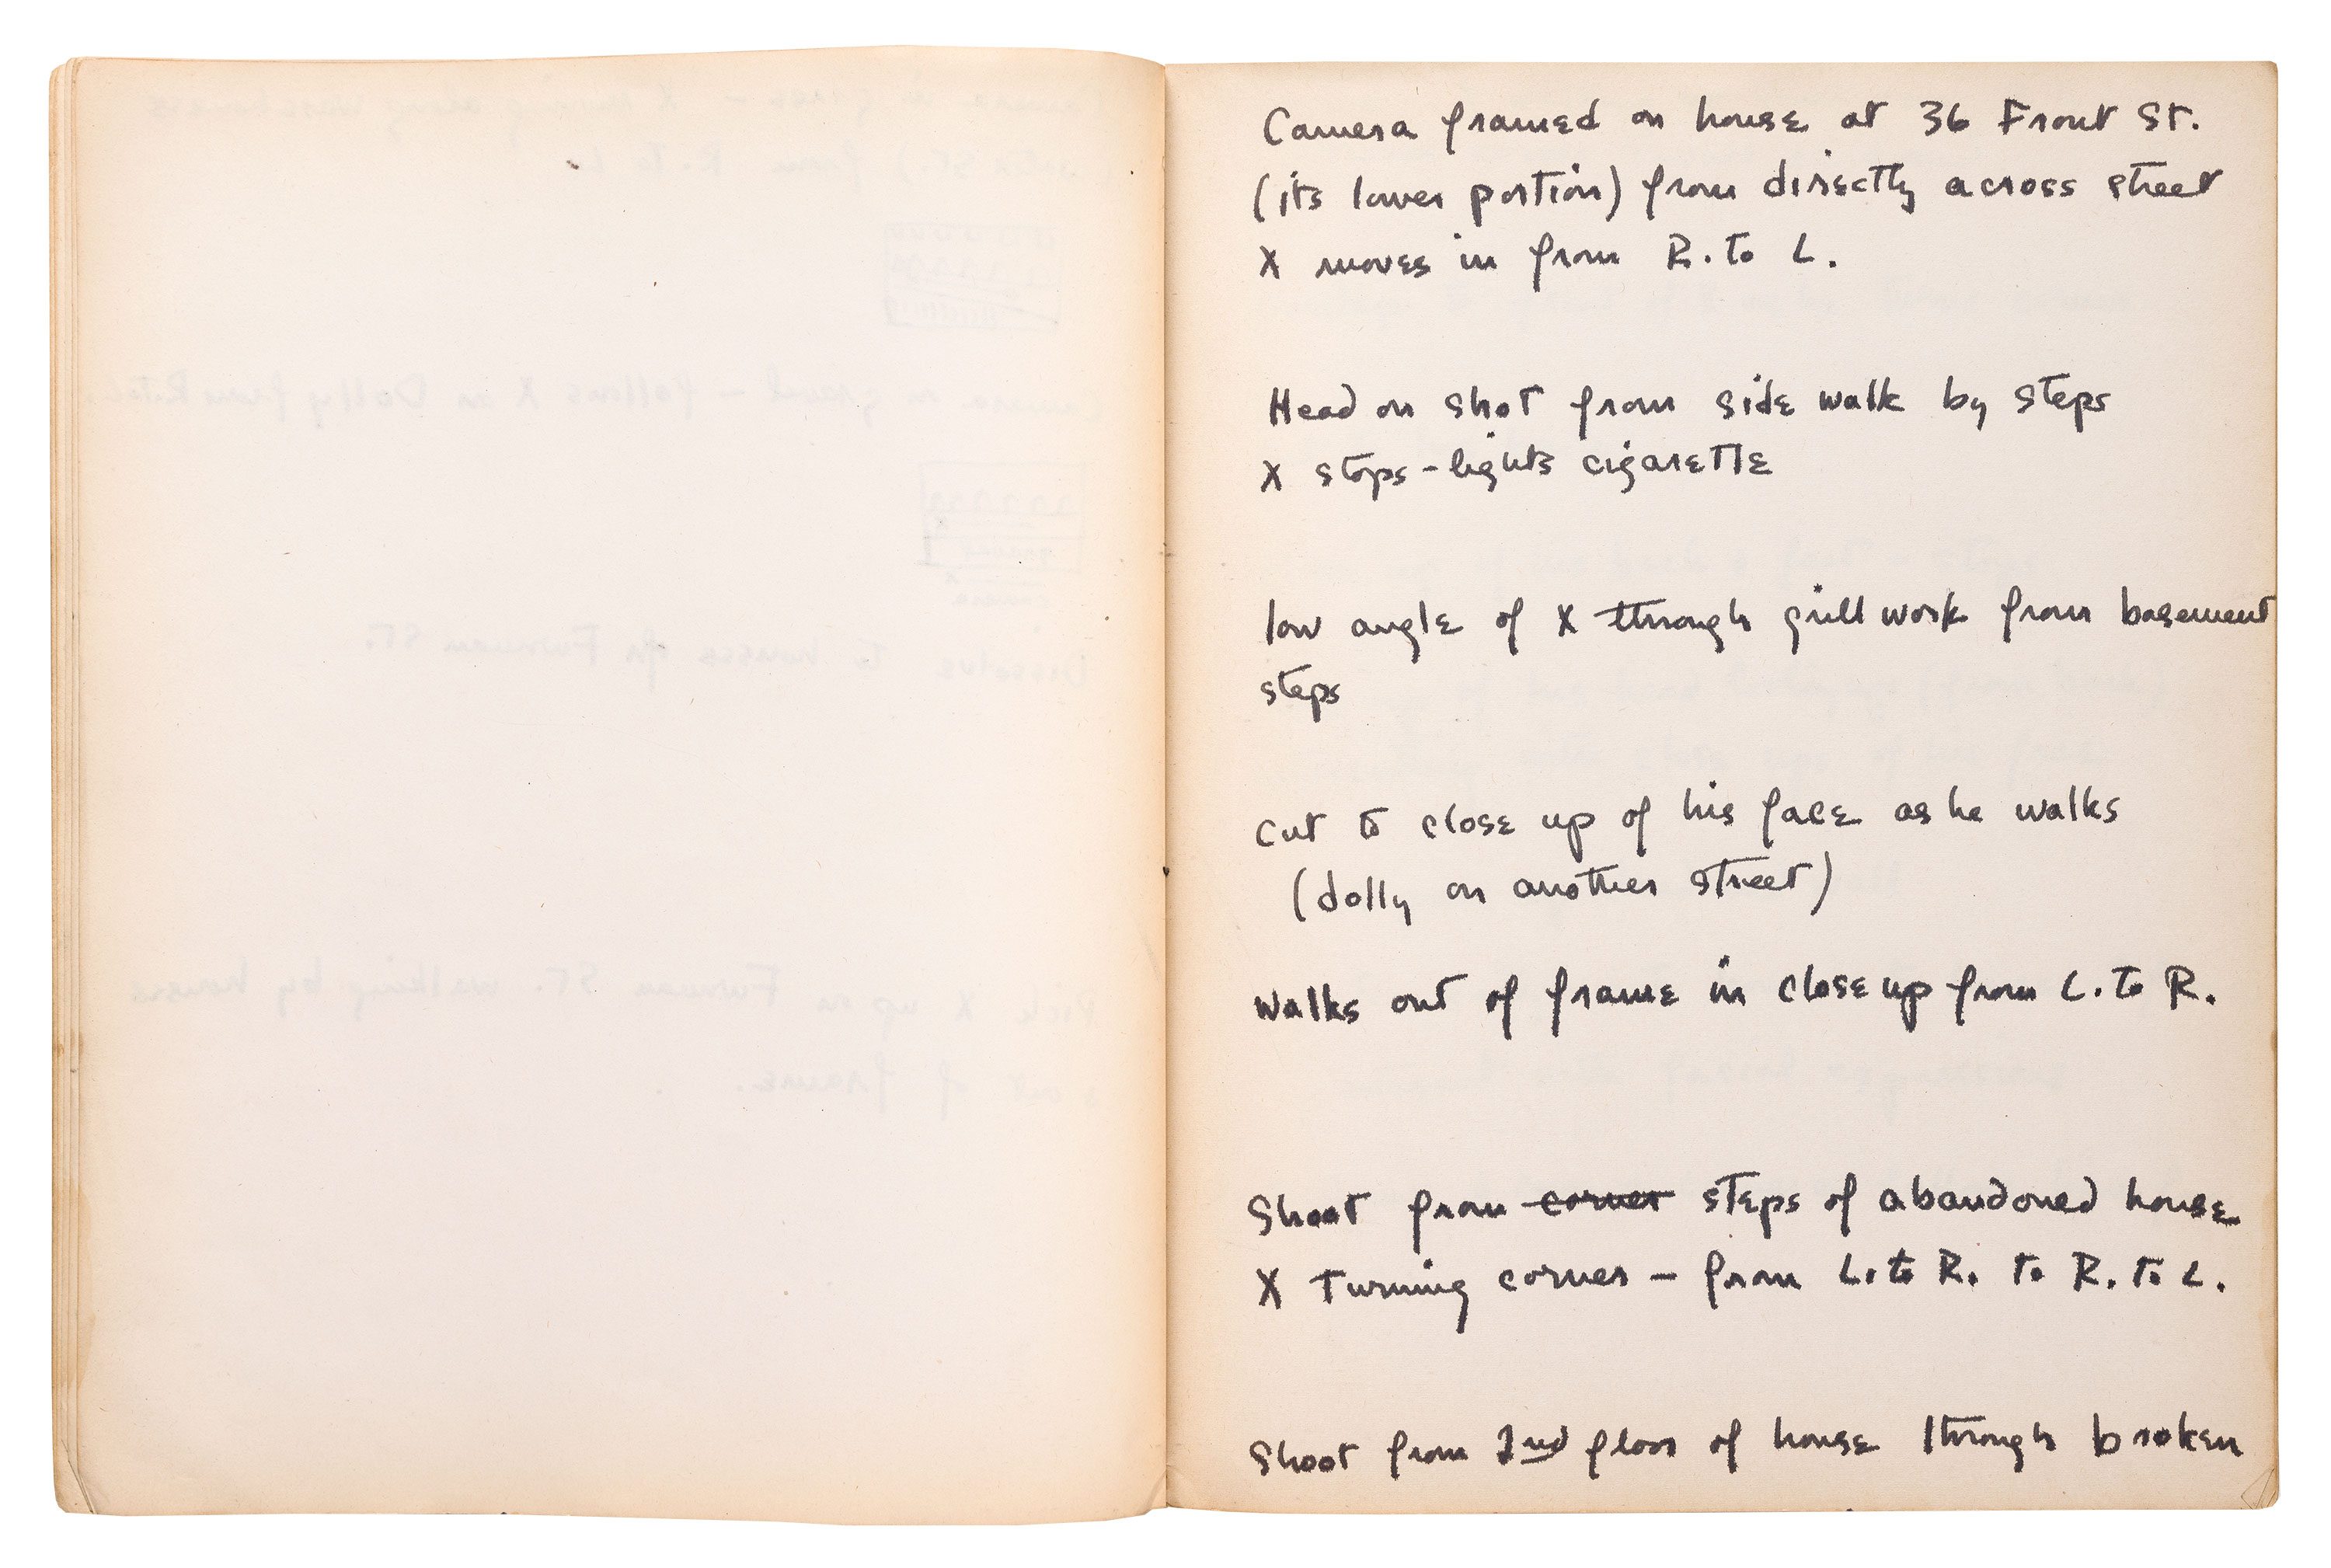 Camera framed on house at 36 Front St.
(its lower portion) from directly across street
X moves in from R. to L.
Head on shot from side walk by steps
X stops - lights cigarette
low angle of X through grill work from basement
steps
cut to close up of his face as he walks
(dolly on another street)
walks out of frame in close up from L. to R.
Shoot from corner steps of abandoned house
X turning corner - from L. to R. to R. to L.
Shoot from 2nd floor of house through broken